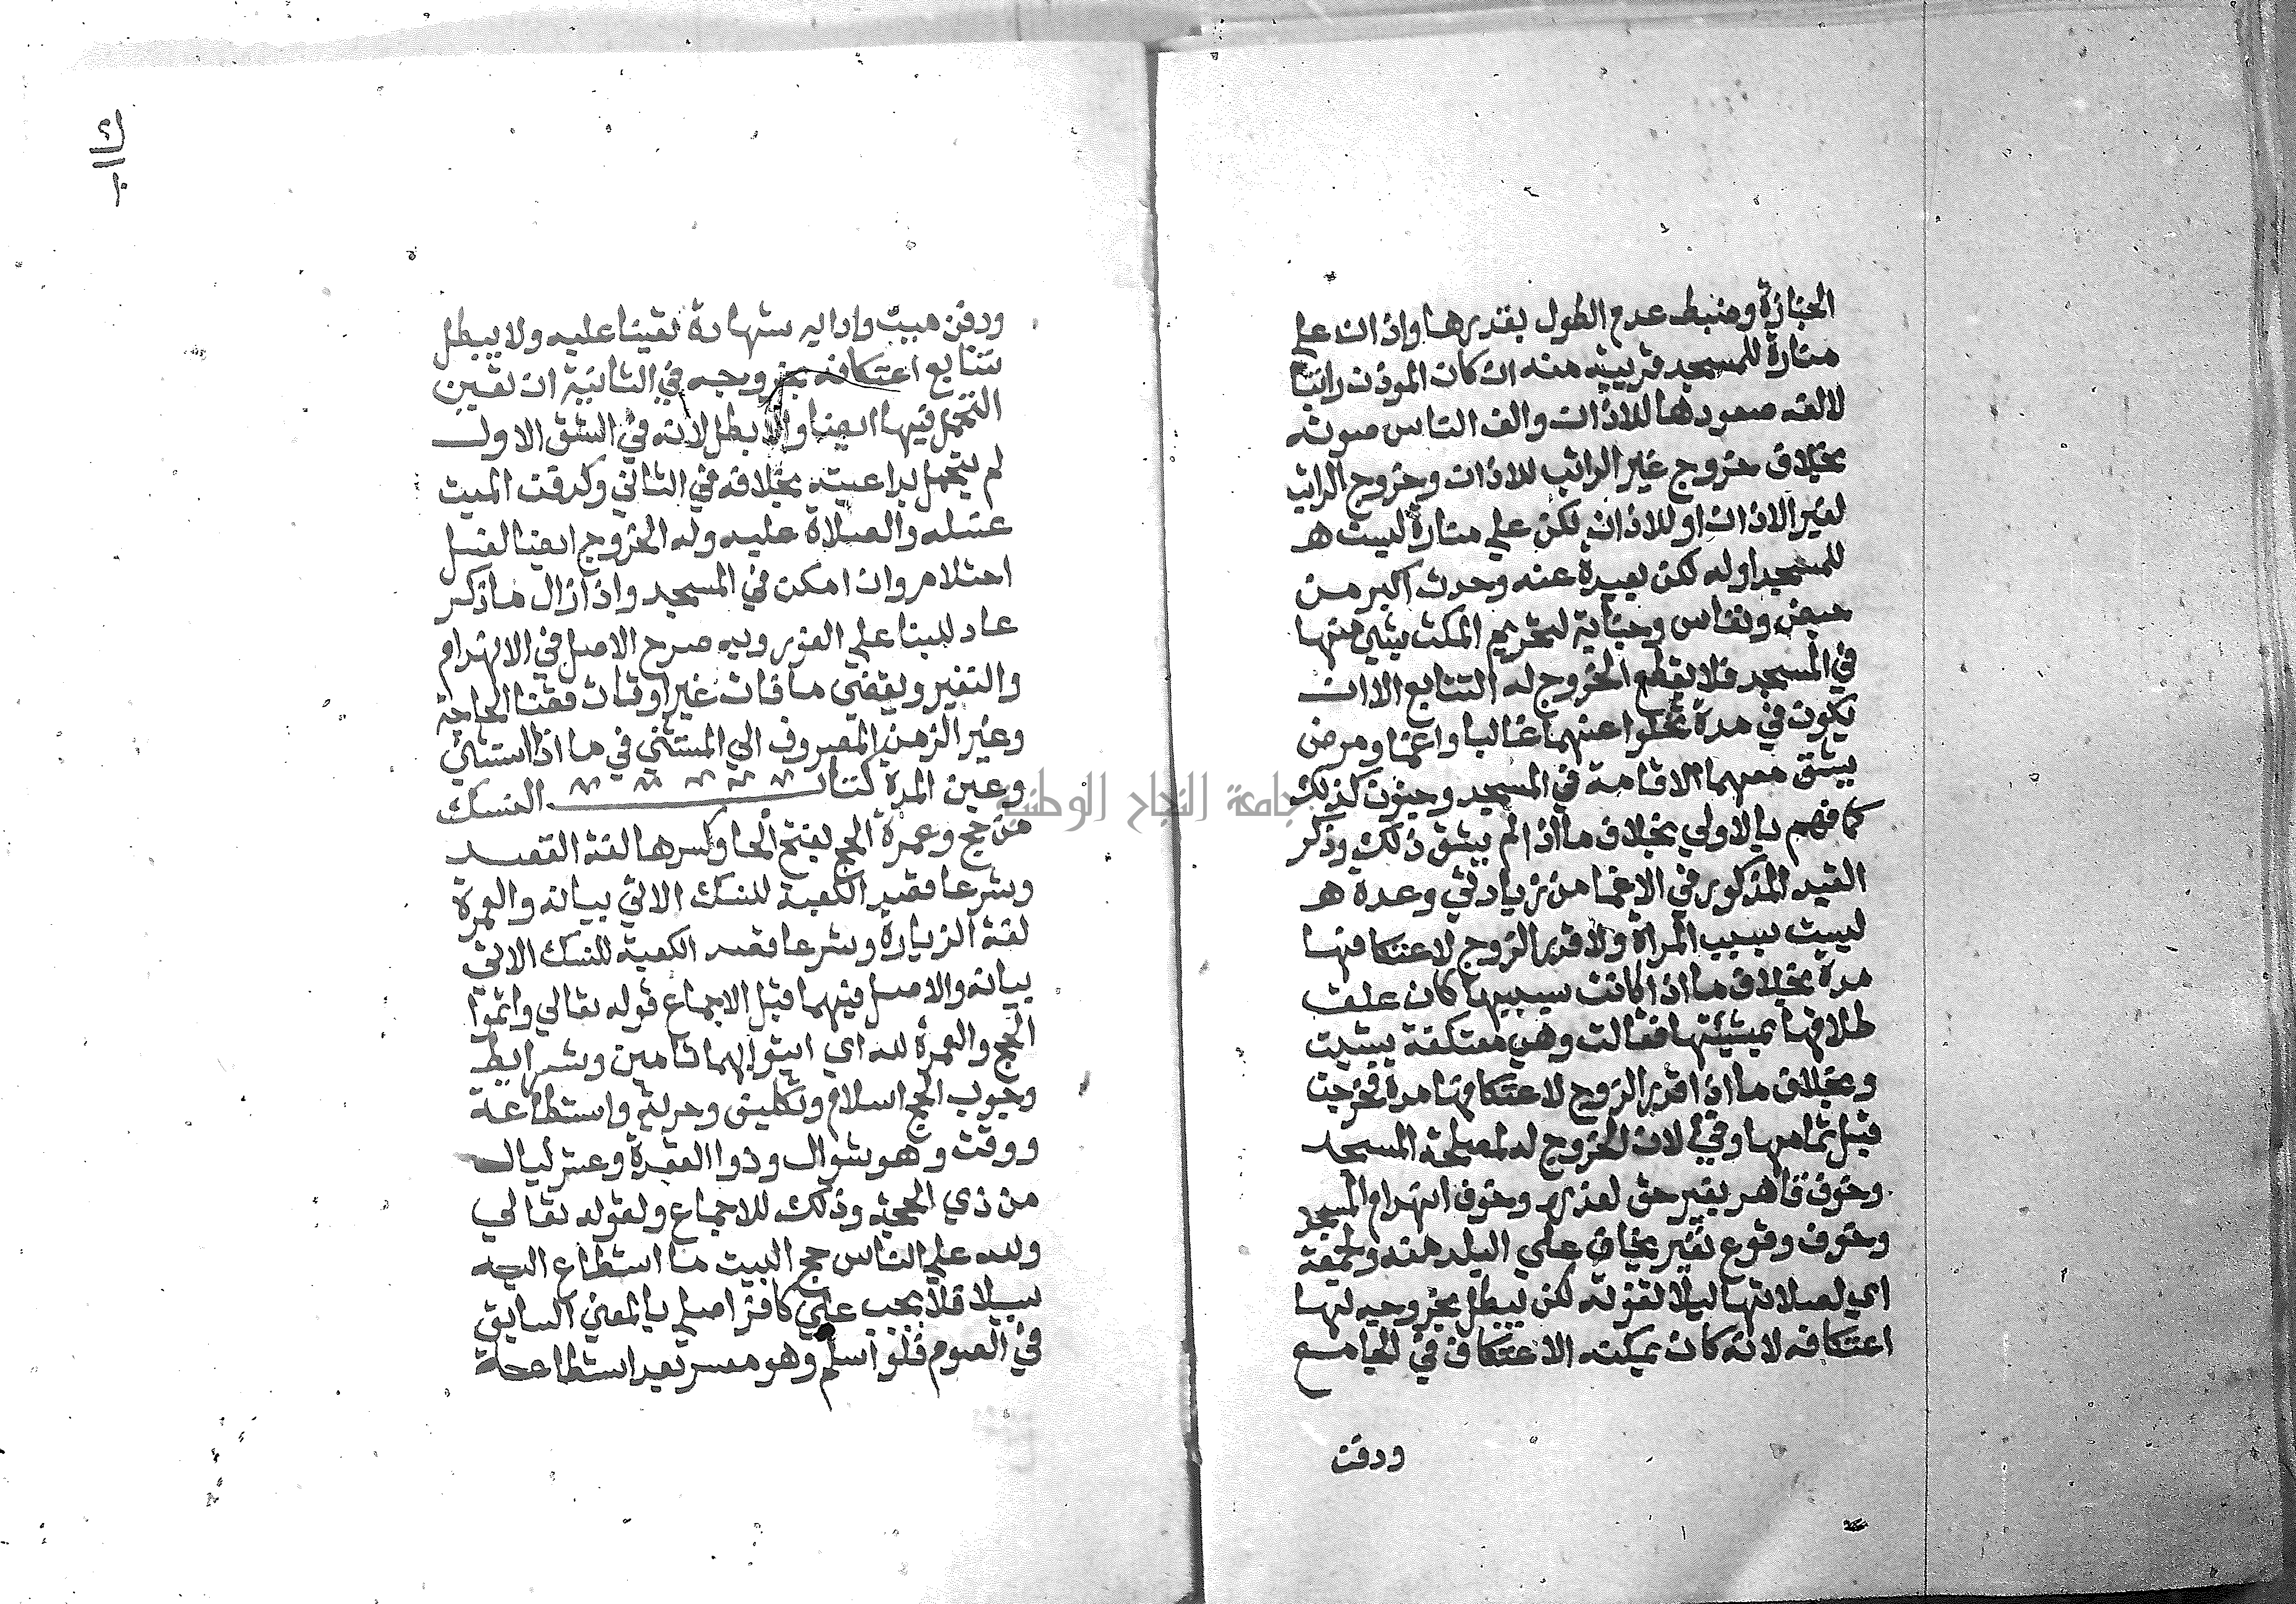 الجنازة وضبط عدم الطول بقدرها واذان علي
منارة للمسجد قريبة منه ان كان الموذن راتبا
لالفه صعودها للاذان والف الناس صوته
بخلاف خروج غير الراتب للاذان وخروج الراتب
لغير الاذان او للاذان لكن علي منارة ليست هـ
للمسجد اوله لكن بعيدة عنه وحدث اكبر من
حيض ونفاس وجنابة لتحريم المكث بشي منها
في المسجد فلا يقطع الخروج له التتابع الا ان
يكون في مدة تخلوا عنهما غالبا واغما ومرض
يشق معهما الاقامة في المسجد وجنون كذلك
كما فهم بالاولي بخلاف ما اذا لم يشق ذلك وذكر
القيد المذكور في الاغما من زيادتي وعدة هـ
ليست بسبب المراة ولا قدر الزوج لاعتكافها
مدة بخلاف ما اذا كانت بسببها كان علق
طلاقها بمشيئتها فقالت وهي معتكفة شيت
وبخلاف ما اذا قدر الزوج لاعتكافها مدة فخرجت
قبل تمامها وفي لان الخروج له لمصلحة المسجد
وخوف قاهر بغير حق لعذره وخوف انهدام المسجد
وخوف وقوع نفير يخاف علي البلد منه ولجمعة
اي لصلاتها ليلا تفوته لكن يبطل بخروجه لها
اعتكافه لانه كان يمكنه الاعتكاف في الجامع
ودفن
ودفن ميت واداء شهادة تعينا عليه ولا يبطل
تتابع اعتكافه بخروجه في الثانية ان تعين
التحمل فيها ايضا والا بطل لانه في الشق الاول
لم يتحمل بداعيته بخلافه في الثاني وكدفن الميت
غسله والصلاة عليه وله الخروج ايضا لغسل
احتلام وان امكن في المسجد واذا زال ما ذكر
عاد للبنا علي الفور وبه صرح الاصل في الانهدام
والنفير ويقضي ما فات غير اوقات قضا الحاجة
وغير الزمن المصروف الي المستثني في ما اذا استثني
وعين المدة كتاب النسك
من حج وعمرة الحج بفتح الحا وكسرها لغة القصد
وشرعا قصد الكعبة للنسك الاتي بيانه والعمرة
لغة الزيارة وشرعا قصد الكعبة للنسك الاتي
بيانه والاصل فيهما قبل الاجماع قوله تعالي واتموا
الحج والعمرة لله اي ايتوا بهما تامين وشرايط
وجوب الحج اسلام وتكليف وحرية واستطاعة
ووقت وهو شوال وذوا القعدة وعشر ليال
من ذي الحجة وذلك للاجماع ولقوله تعالي
ولله علي الناس حج البيت ما استطاع اليه
سبيلا فلا يجب علي كافر اصلي بالمعني السابق
في الصوم فلو اسلم وهو معسر بعد استطاعة
جامعة النجاح الوطنية